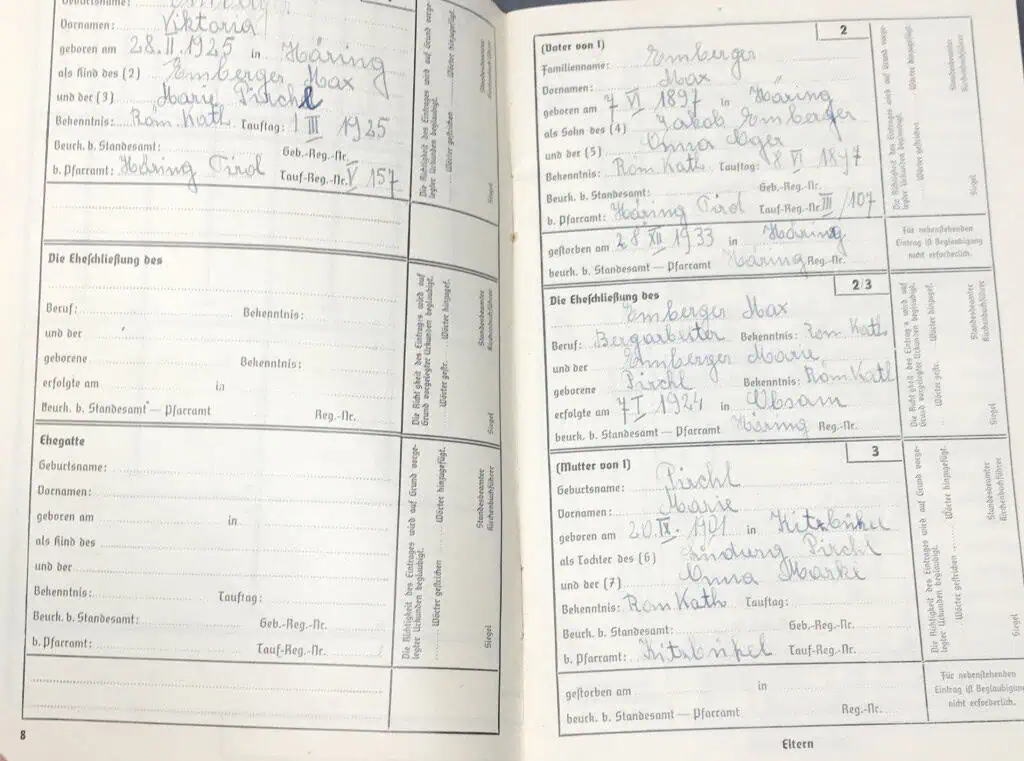 Geburtsname: Emberger
Vornamen: Viktoria
geboren am 28. II. 1925 in Häring
als Kind des (2) Emberger Max
und der (3) Marie Pirchl
Bekenntnis: Rom. Kath. Tauftag: 1 III 1925
Beurk. b. Standesamt: Geb.-Reg.-Nr.
b. Pfarramt: Häring Tirol Tauf-Reg.-Nr. V 157
Die Richtigkeit des Eintrages wird auf Grund vorge-
legter Urkunden beglaubigt.
Wörter gestrichen Wörter hinzugefügt.
Standesbeamter
Kirchenbuchführer
Siegel
Die Eheschließung des
Beruf: Bekenntnis:
und der
geborene Bekenntnis:
erfolgte am in
Beurk. b. Standesamt — Pfarramt Reg.-Nr.
Die Richtigkeit des Eintrages wird auf
Grund vorgelegter Urkunden beglaubigt.
Wörter gestr. Wörter hinzugef.
Standesbeamter
Kirchenbuchführer
Siegel
Ehegatte
Geburtsname:
Vornamen:
geboren am in
als Kind des
und der
Bekenntnis: Tauftag:
Beurk. b. Standesamt: Geb.-Reg.-Nr.
b. Pfarramt: Tauf-Reg.-Nr.
Die Richtigkeit des Eintrages wird auf Grund vorge-
legter Urkunden beglaubigt.
Wörter gestrichen Wörter hinzugefügt.
Standesbeamter
Kirchenbuchführer
Siegel
8
2
(Vater von 1)
Familienname: Emberger
Vornamen: Max
geboren am 7 VI 1897 in Häring
als Sohn des (4) Jakob Emberger
und der (5) Anna Ager
Bekenntnis: Rom. Kath. Tauftag: 8 VI 1897
Beurk. b. Standesamt: Geb.-Reg.-Nr.
b. Pfarramt: Häring Tirol Tauf-Reg.-Nr. III / 107
gestorben am 28 XII 1933 in Häring
beurk. b. Standesamt — Pfarramt Häring Reg.-Nr.
Die Richtigkeit des Eintrages wird auf Grund vorge-
legter Urkunden beglaubigt.
Wörter gestrichen Wörter hinzugefügt.
Standesbeamter
Kirchenbuchführer
Siegel
Für nebenstehenden
Eintrag ist Beglaubigung
nicht erforderlich.
2/3
Die Eheschließung des
Emberger Max
Beruf: Bergarbeiter Bekenntnis: Rom. Kath
und der Emberger Marie
geborene Pirchl Bekenntnis: Rom. Kath
erfolgte am 7 I 1924 in Absam
beurk. b. Standesamt — Pfarramt Häring Reg.-Nr.
Die Richtigkeit des Eintrages wird auf
Grund vorgelegter Urkunden beglaubigt.
Wörter gestr. Wörter hinzugef.
Standesbeamter
Kirchenbuchführer
Siegel
3
(Mutter von 1)
Geburtsname: Pirchl
Vornamen: Marie
geboren am 20. IX. 1901 in Kitzbühel
als Tochter des (6) Pirchl
und der (7) Anna Marki
Bekenntnis: Rom Kath Tauftag:
Beurk. b. Standesamt: Geb.-Reg.-Nr.
b. Pfarramt: Kitzbühel Tauf-Reg.-Nr.
gestorben am in
beurk. b. Standesamt — Pfarramt Reg.-Nr.
Die Richtigkeit des Eintrages wird auf Grund vorge-
legter Urkunden beglaubigt.
Wörter gestrichen Wörter hinzugefügt.
Standesbeamter
Kirchenbuchführer
Siegel
Für nebenstehenden
Eintrag ist Beglaubigung
nicht erforderlich.
Eltern